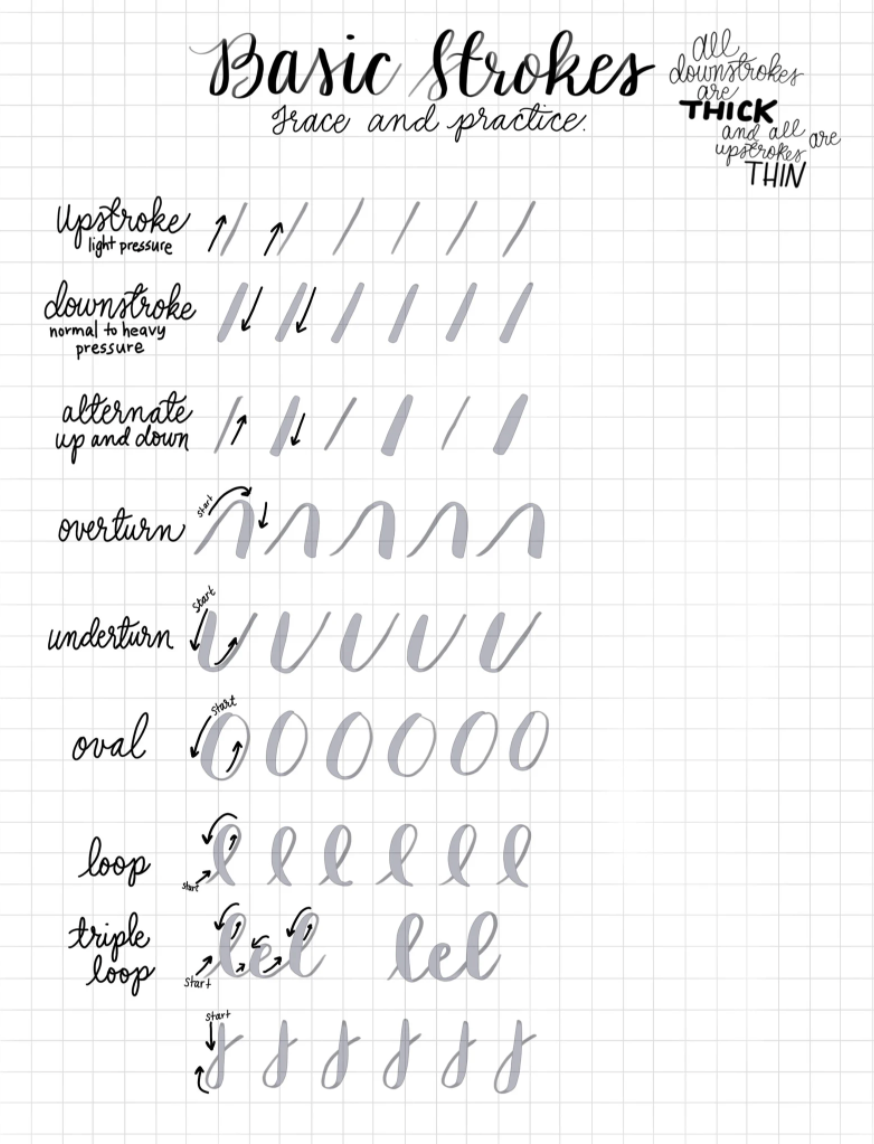 Basic Strokes
Trace and practice.
all
downstrokes
are
THICK
and all are
upstrokes
THIN
upstroke
light pressure
downstroke
normal to heavy
pressure
alternate
up and down
overturn
start
underturn
start
oval
start
loop
start
triple
loop
start
lel lel
start